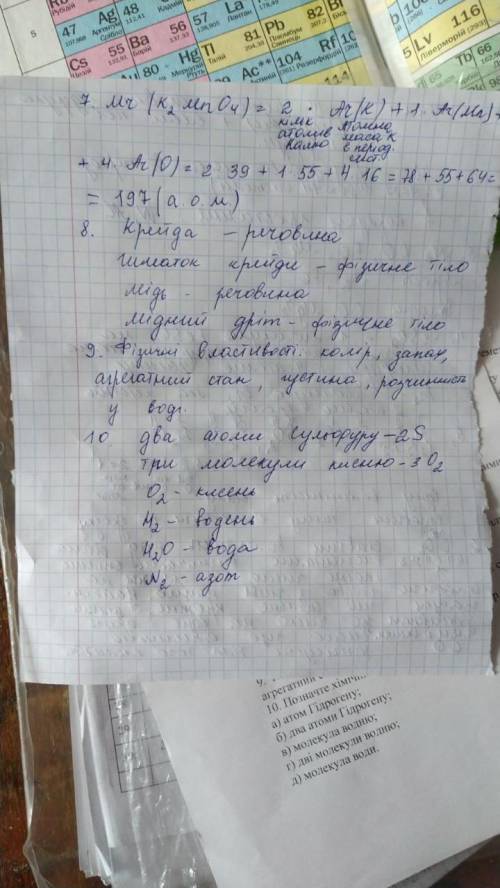 5
Рубідій
47
107,868
Ag
48
112,41
57
La
Лантан
178,49
Cs 55
132,91
Цезій
56
Ba
Барій
137,33
Ta
81
Талій
204,38
Pb 82
Плюмбум
Свинець
Au 80
79
Hg
Меркурій
Ртуть
Ac**
104
Rf
[261]
Резерфордій
b
5
Lv
116
Ліверморій
(293)
Tb
66
7. Mr (K₂MnO₄) = 2 · Ar(K) + 1 · Ar(Mn) +
кільк атомів Калію
Атомна маса K в період. сист.
+ 4 · Ar(O) = 2 · 39 + 1 · 55 + 4 · 16 = 78 + 55 + 64 =
= 197 (а.о.м)
8. Крейда – речовина
шматок крейди – фізичне тіло
мідь – речовина
мідний дріт – фізичне тіло
9. Фізичні властивості: колір, запах,
агрегатний стан, густина, розчинність
у воді.
10 два атоми Сульфуру – 2S
три молекули кисню – 3O₂
O₂ – кисень
H₂ – водень
H₂O – вода
N₂ – азот
9.
агрегатний
10. Позначте хімічн
а) атом Гідрогену;
б) два атоми Гідрогену;
в) молекула водню;
г) дві молекули водню;
д) молекула води.